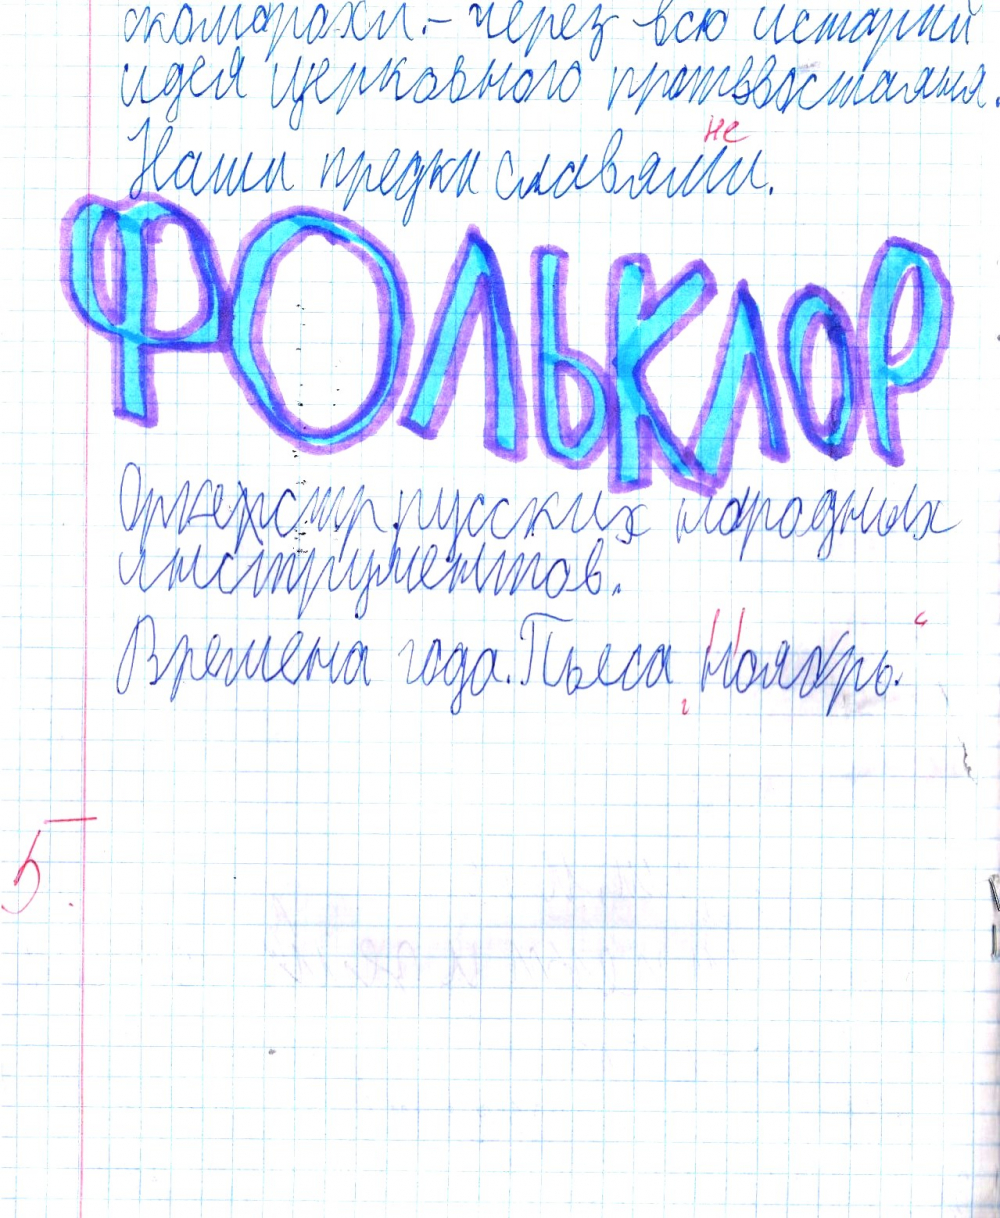 скоморохи. - через всю истории
идея церковного противостояния.
не
Наши предки славяни.
ФОЛЬКЛОР
Оркехстр русских народных
инструментов.
Времена года. Пьеса „Ноябрь.“
5-